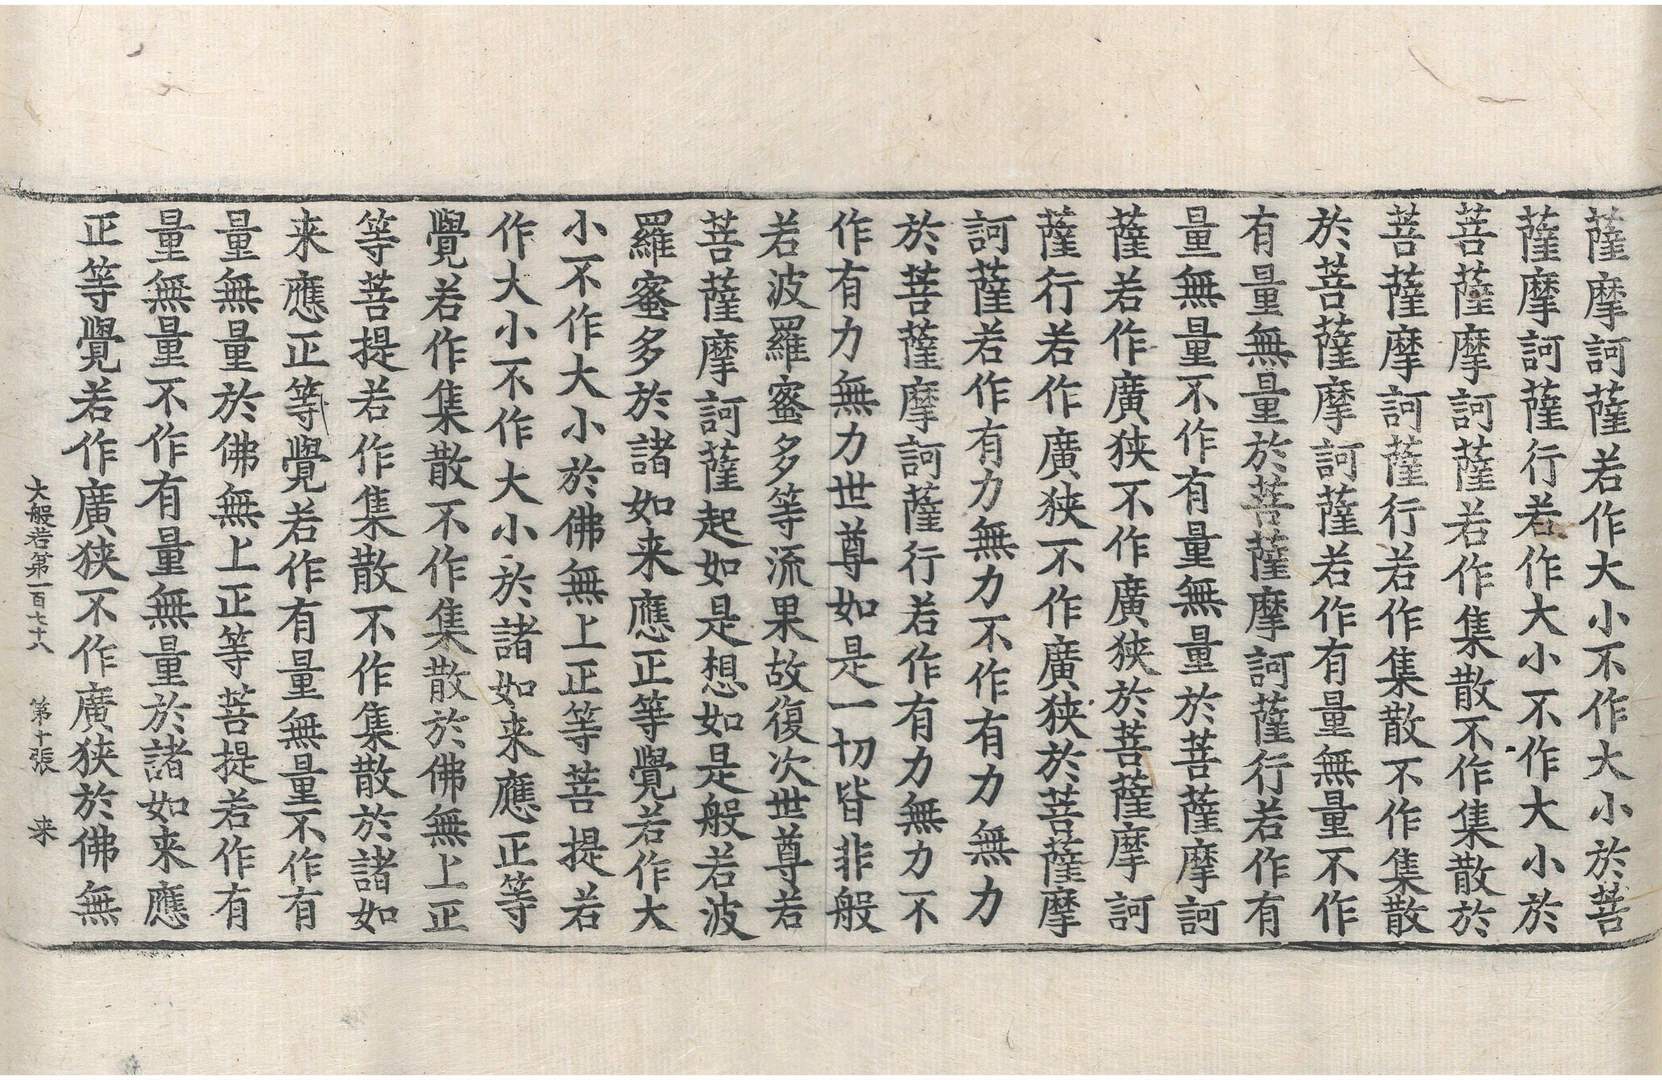 薩摩訶薩若作大小不作大小於菩
薩摩訶薩行若作大小不作大小於
菩薩摩訶薩若作集散不作集散於
菩薩摩訶薩行若作集散不作集散
於菩薩摩訶薩若作有量無量不作
有量無量於菩薩摩訶薩行若作有
量無量不作有量無量於菩薩摩訶
薩若作廣狭不作廣狭於菩薩摩訶
薩行若作廣狭不作廣狭於菩薩摩
訶薩若作有力無力不作有力無力
於菩薩摩訶薩行若作有力無力不
作有力無力世尊如是一切皆非般
若波羅蜜多等流果故復次世尊若
菩薩摩訶薩起如是想如是般若波
羅蜜多於諸如来應正等覺若作大
小不作大小於佛無上正等菩提若
作大小不作大小於諸如来應正等
覺若作集散不作集散於佛無上正
等菩提若作集散不作集散於諸如
来應正等覺若作有量無量不作有
量無量於佛無上正等菩提若作有
量無量不作有量無量於諸如来應
正等覺若作廣狭不作廣狭於佛無
大般若第一百七十八 第十張 来